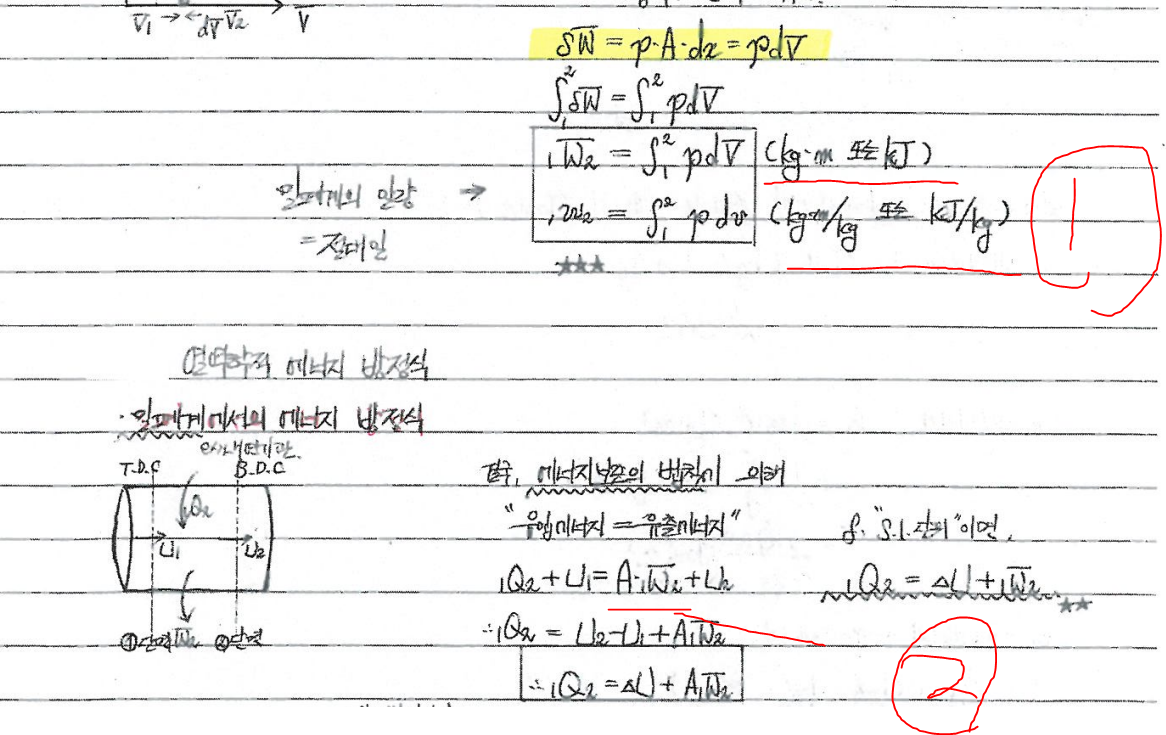 V̅₁ → ← dV̅ V̅₂ V̅
δW̅ = p·A·dx = pdV̅
∫₁²δW̅ = ∫₁² pdV̅
₁W̅₂ = ∫₁² pdV̅ (kg·m 또는 kJ)
밀폐계의 일량 → ₁w₂ = ∫₁² pdv (kg·m/kg 또는 kJ/kg)
= 절대일
★★★
1
열역학적 에너지 방정식
·밀폐계에서의 에너지 방정식
T.D.C B.D.C
₁Q₂
U₁ U₂
①단면 ₁W̅₂ ②단면
결국, 에너지보존의 법칙에 의해
"유입에너지 = 유출에너지"
₁Q₂ + U₁ = A·₁W̅₂ + U₂
∴ ₁Q₂ = U₂ - U₁ + A₁W̅₂
∴ ₁Q₂ = ΔU + A₁W̅₂
"S.I.단위"이면,
₁Q₂ = ΔU + ₁W̅₂
★★
2